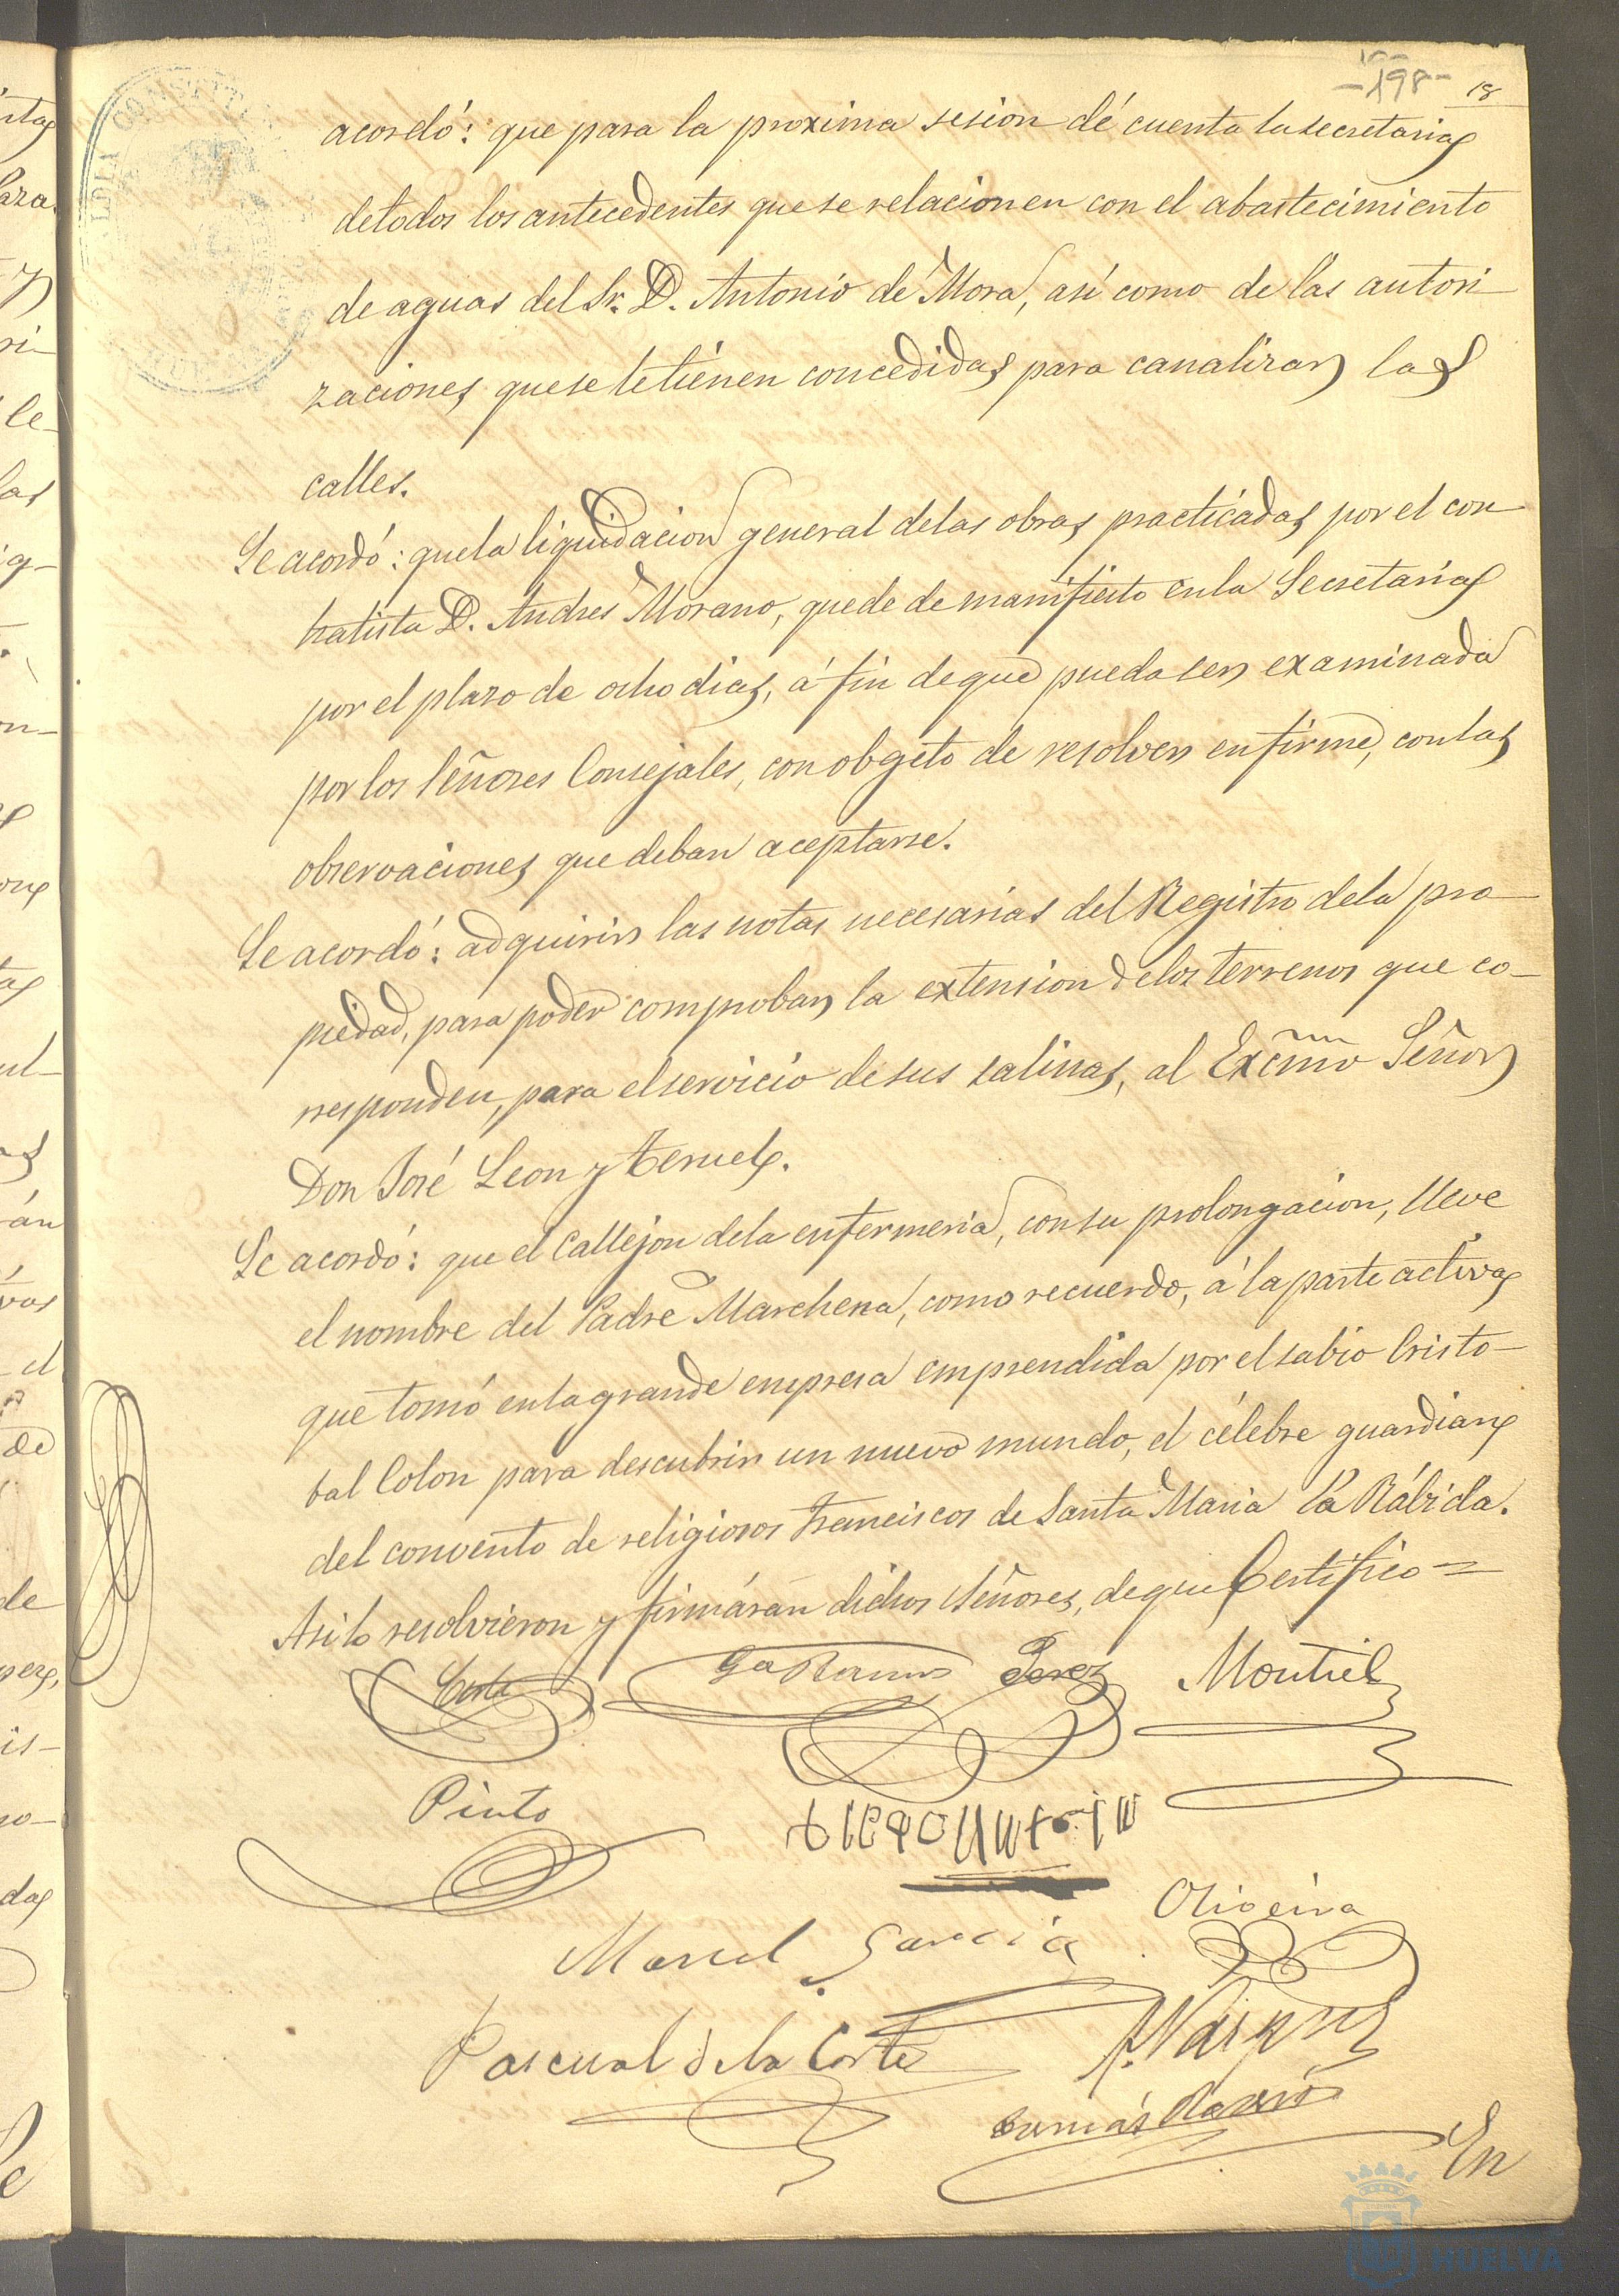 -198-
18
acordó: que para la proxima sesion dé cuenta la secretaria
de todos los antecedentes que se relacionen con el abastecimiento
de aguas del Sr. D. Antonio de Mora, asi como de las autori-
zaciones que se le tienen concedidas para canalizar las
calles.
Se acordó: que la liquidacion general de las obras practicadas por el con-
tratista D. Andres Morano, quede de manifiesto en la Secretaria
por el plazo de ocho dias, á fin de que pueda ser examinada
por los Señores Consejales, con obgeto de resolver en firme, con las
observaciones que deban aceptarse.
Se acordó: adquirir las notas necesarias del Registro de la pro-
piedad, para poder comprobar la extension de los terrenos que co-
rresponden, para el servicio de sus salinas, al Excmo Señor
Don José Leon y Teruel.
Se acordó: que el Callejon de la enfermeria, con su prolongacion, lleve
el nombre del Padre Marchena, como recuerdo, á la parte activa
que tomó en la grande empresa emprendida por el sabio Cristo-
bal Colon para descubrir un nuevo mundo, el célebre guardian
del convento de religiosos Franciscos de Santa Maria la Rábida.
Asi lo resolvieron y firmáran dichos Señores, de que Certifico =
Corte Ga Ramos Perez Montiel
Pinto
Oliveira
Manuel Garcia
Pascual de la Corte
A. Vazquez
En
HUELVA